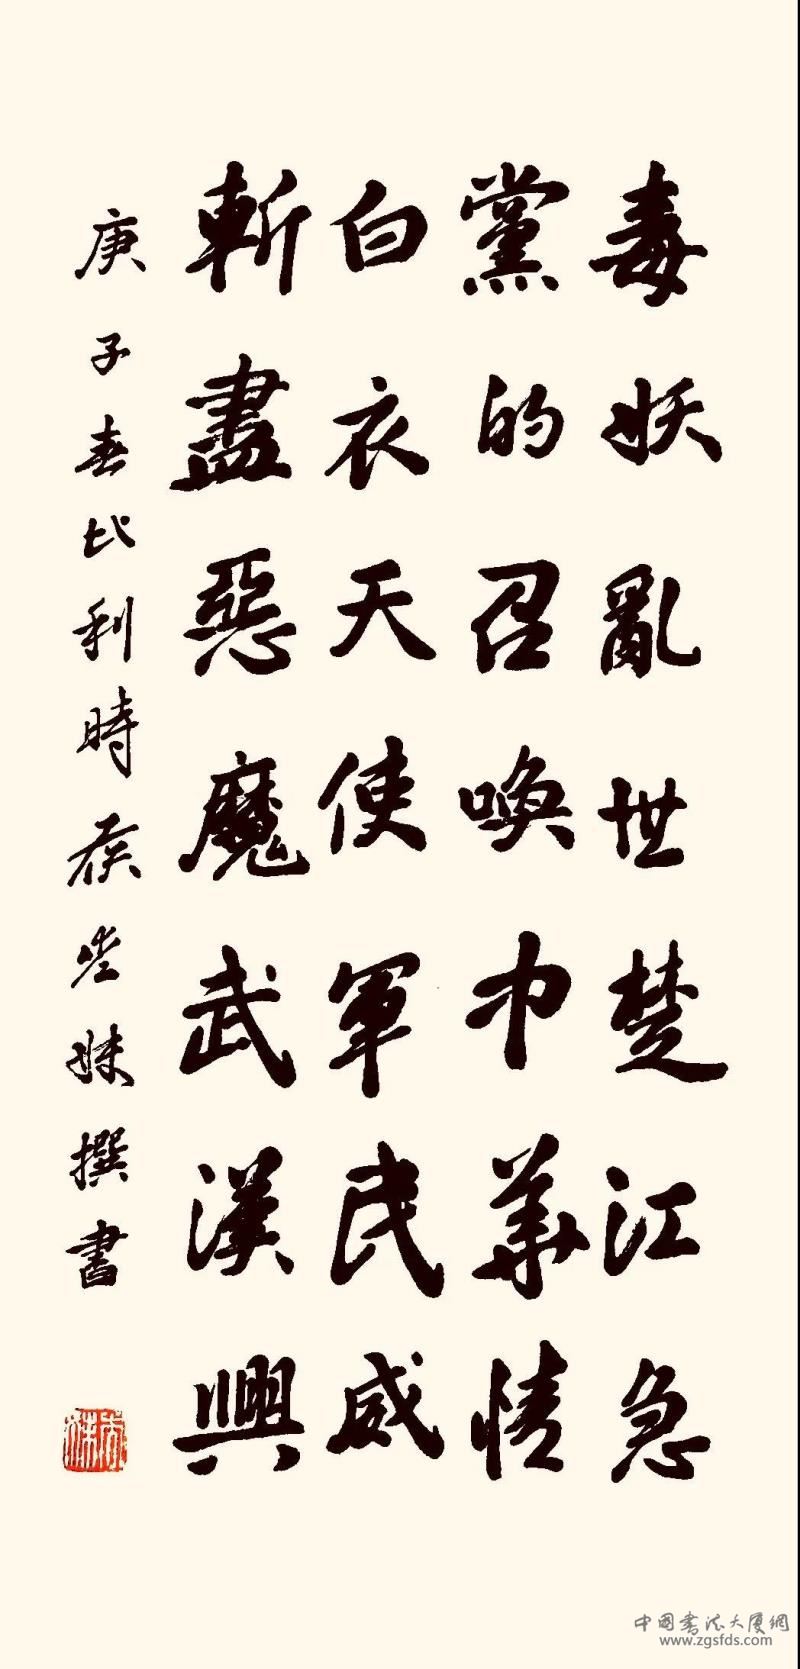 毒妖亂世楚江急
黨的召喚中華情
白衣天使軍民威
斬盡惡魔武漢興
庚子春比利時侯出妹撰書
中國書法大厦網
www.zgsfds.com